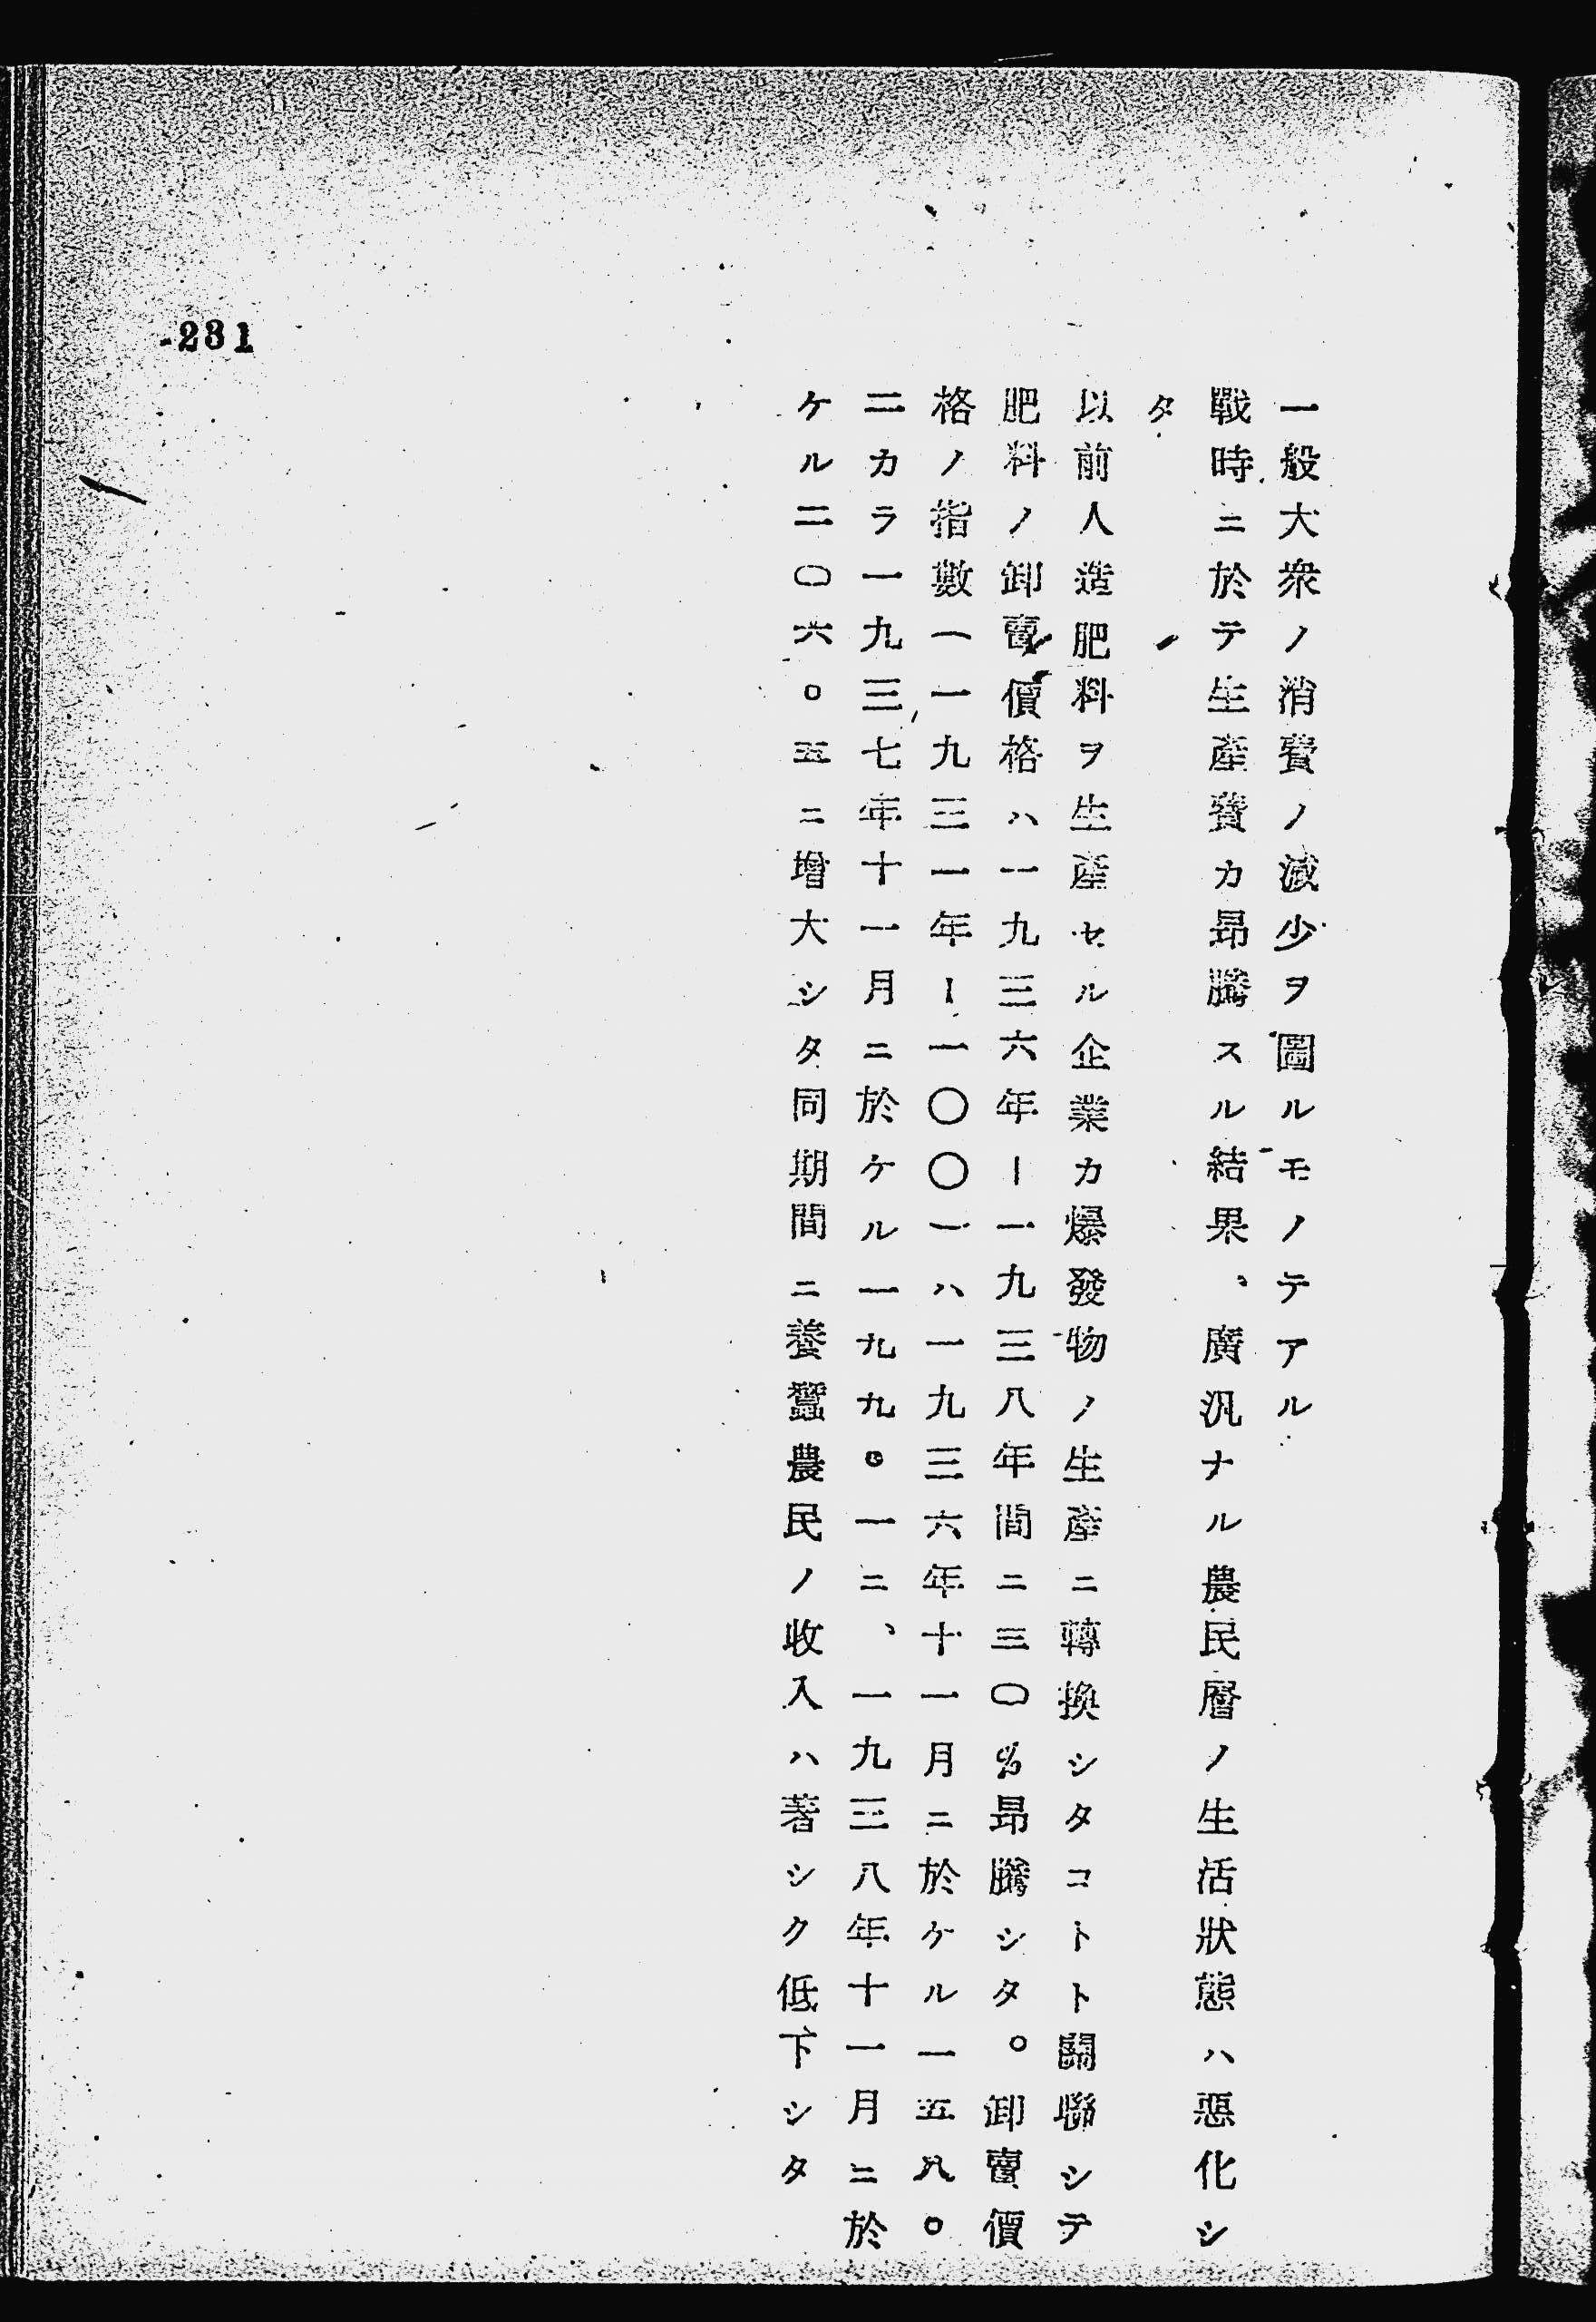 一般大衆ノ消費ノ減少ヲ圖ルモノテアル
戰時ニ於テ生產費カ昻騰スル結果、廣汎ナル農民層ノ生活狀態ハ惡化シ
タ
以前人造肥料ヲ生產セル企業カ爆發物ノ生產ニ轉換シタコトト關聯シテ
肥料ノ卸賣價格ハ一九三六年ー一九三八年間ニ三〇%昻騰シタ。卸賣價
格ノ指數(一九三一年ー一〇〇)ハ一九三六年十一月ニ於ケル一五八。
二カラ一九三七年十一月ニ於ケル一九九。一ニ、一九三八年十一月ニ於
ケル二〇六。五ニ增大シタ同期間ニ養蠶農民ノ收入ハ著シク低下シタ
231